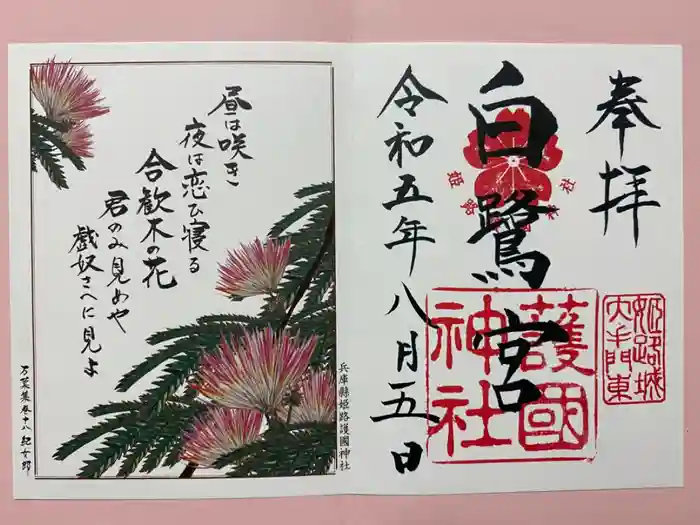 奉拝
白鷺宮
令和五年八月五日
護國
神社
姫路城
大手門東
姫路
昼は咲き
夜は恋ひ寝る
合歓木の花
君のみ見めや
戯奴さへに見よ
万葉集巻十八 紀女郎
兵庫縣姫路護國神社